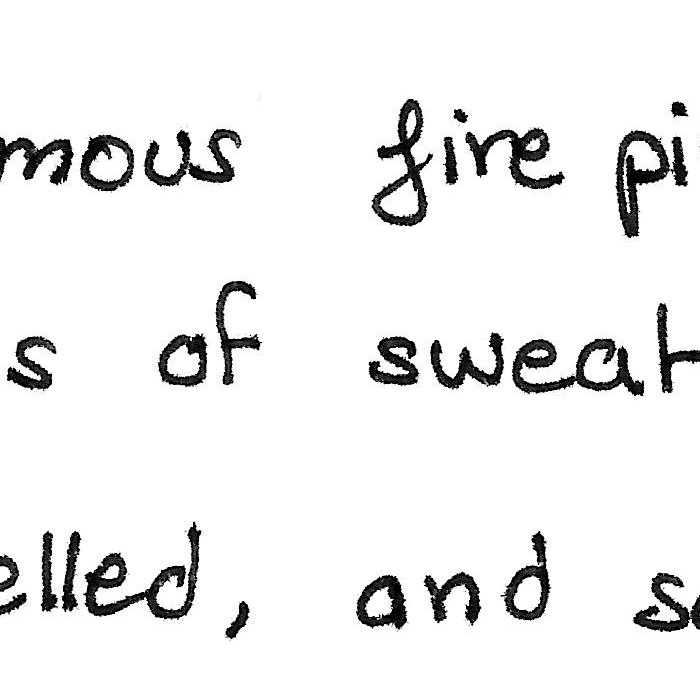 mous fire pi
s of sweat
elled, and s